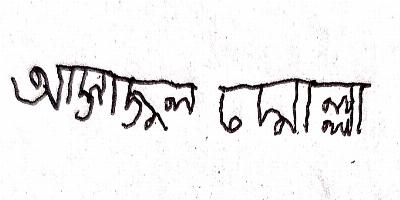 আজাজুল মোল্লা